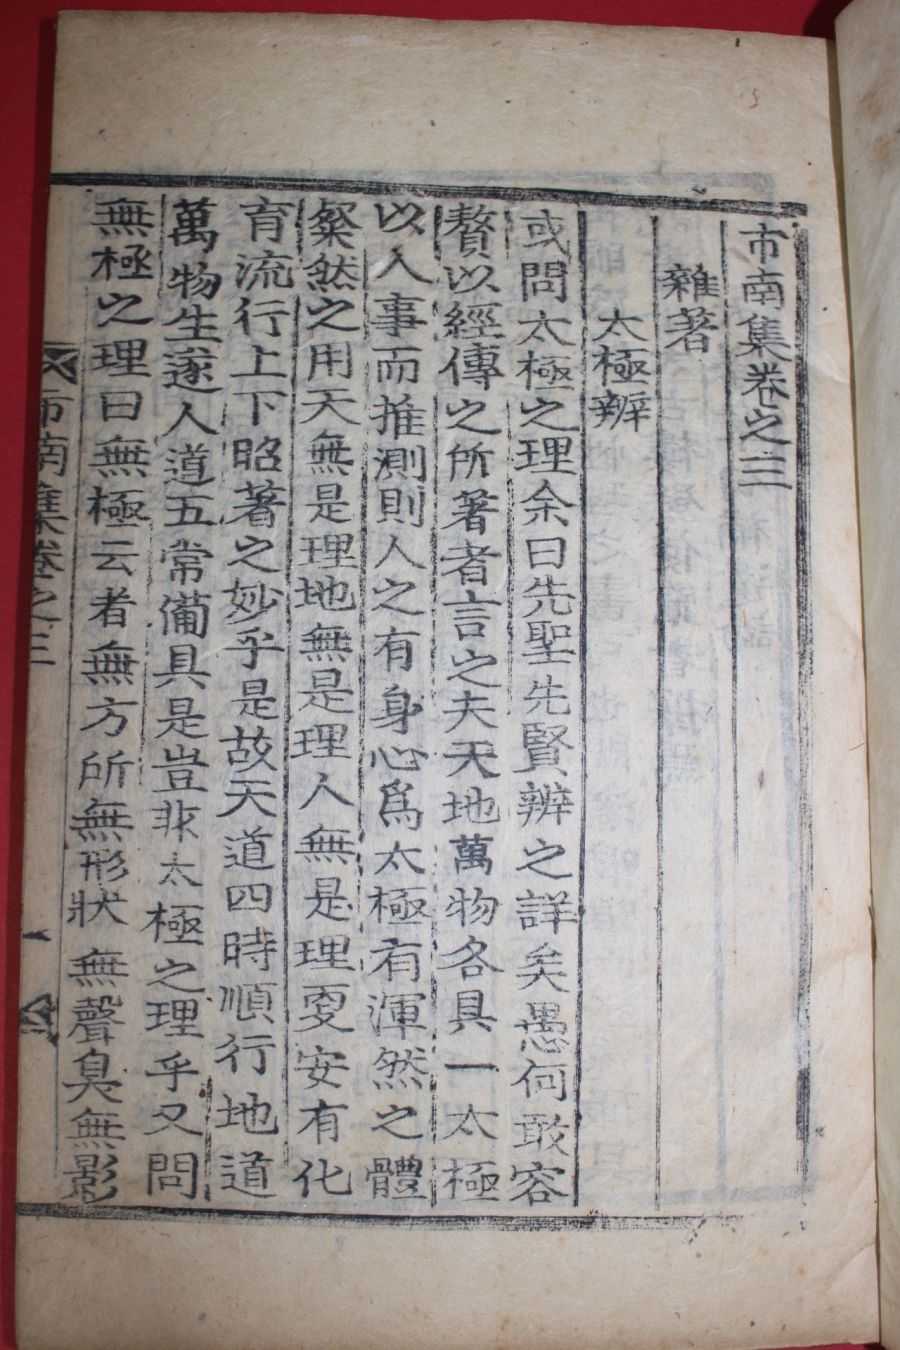 市南集卷之三
雜著
太極辨
或問太極之理余曰先聖先賢辨之詳矣愚何敢容
贅以經傳之所著者言之夫天地萬物各具一太極
以人事而推測則人之有身心爲太極有渾然之體
粲然之用天無是理地無是理人無是理更安有化
育流行上下昭著之妙乎是故天道四時順行地道
萬物生遂人道五常備具是豈非太極之理乎又問
無極之理曰無極云者無方所無形狀無聲臭無影
市南集卷之三